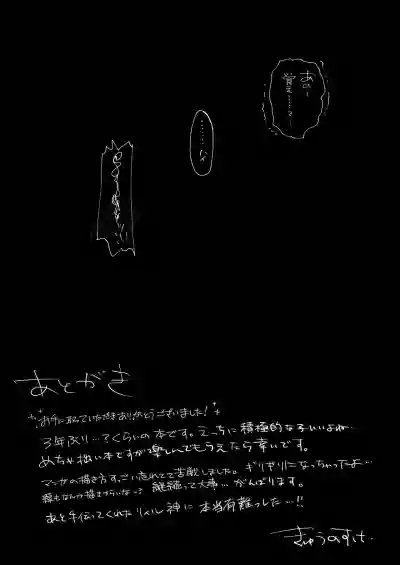 あのー
……
……
あとがき
お手に取っていただきありがとうございました!
3年ぶり…くらいの本です。えっちに積極的な
めちゃ拙い本ですが楽しんでもらえたら幸いです。
マンガの描き方すごい忘れてて苦戦しました。ギリギリになっちゃったよ…
継続って大事…がんばります。
あと手伝ってくれた 神に本当有難うした…!!
きゅうのすけ